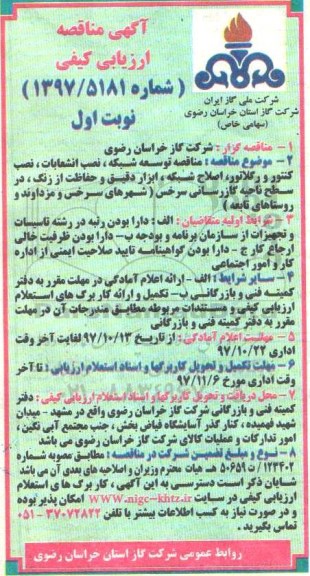 آگهی مناقصه
ارزیابی کیفی
( شماره ۱۳۹۷/۵۱۸۱ )
نوبت اول
شرکت ملی گاز ایران
شرکت گاز استان خراسان رضوی
(سهامی خاص)
۱- مناقصه گزار : شرکت گاز خراسان رضوی
۲- موضوع مناقصه : مناقصه توسعه شبکه ، نصب انشعابات ، نصب
کنتور و رگلاتور، اصلاح شبکه ، ابزار دقیق و حفاظت از زنگ ، در
سطح ناحیه گازرسانی سرخس ( شهرهای سرخس و مزداوند و
روستاهای تابعه )
۳- شرایط اولیه متقاضیان : الف : دارا بودن رتبه در رشته تاسیسات
و تجهیزات از سازمان برنامه و بودجه ب- دارا بودن ظرفیت خالی
ارجاع کار ج - دارا بودن گواهینامه تایید صلاحیت ایمنی از اداره
کار و امور اجتماعی
۴- سایر شرایط : الف - ارائه اعلام آمادگی در مهلت مقرر به دفتر
کمیته فنی و بازرگانی ب- تکمیل و ارائه کاربرگ های استعلام
ارزیابی کیفی و مستندات مربوطه مطابق مندرجات آن در مهلت
مقرر به دفتر کمیته فنی و بازرگانی
۵- مهلت اعلام آمادگی : از تاریخ ۹۷/۱۰/۱۳ لغایت آخر وقت
اداری ۹۷/۱۰/۲۲
۶- مهلت تکمیل و تحویل کاربرگها و اسناد استعلام ارزیابی : تا آخر
وقت اداری مورخ ۹۷/۱۱/۶
۷- محل دریافت و تحویل کاربرگها و اسناد استعلام ارزیابی کیفی : دفتر
کمیته فنی و بازرگانی شرکت گاز خراسان رضوی واقع در مشهد - میدان
شهید فهمیده، کنار گذر آسایشگاه فیاض بخش ، جنب مجتمع آبی نگین ،
امور تدارکات و عملیات کالای شرکت گاز خراسان رضوی می باشد
۸- نوع و مبلغ تضمین شرکت در مناقصه : مطابق مصوبه شماره
۱۲۳۴۰۲ / ت ۵۰۶۵۹ هـ هیات محترم وزیران و اصلاحیه های بعدی آن می باشد
شایان ذکر است دسترسی به این آگهی، کاربرگ های استعلام
ارزیابی کیفی در سایت www.nigc-khrz.ir امکان پذیر بوده
و در صورت نیاز به کسب اطلاعات بیشتر با تلفن ۳۷۰۷۲۸۲۲-۰۵۱
تماس بگیرید .
روابط عمومی شرکت گاز استان خراسان رضوی